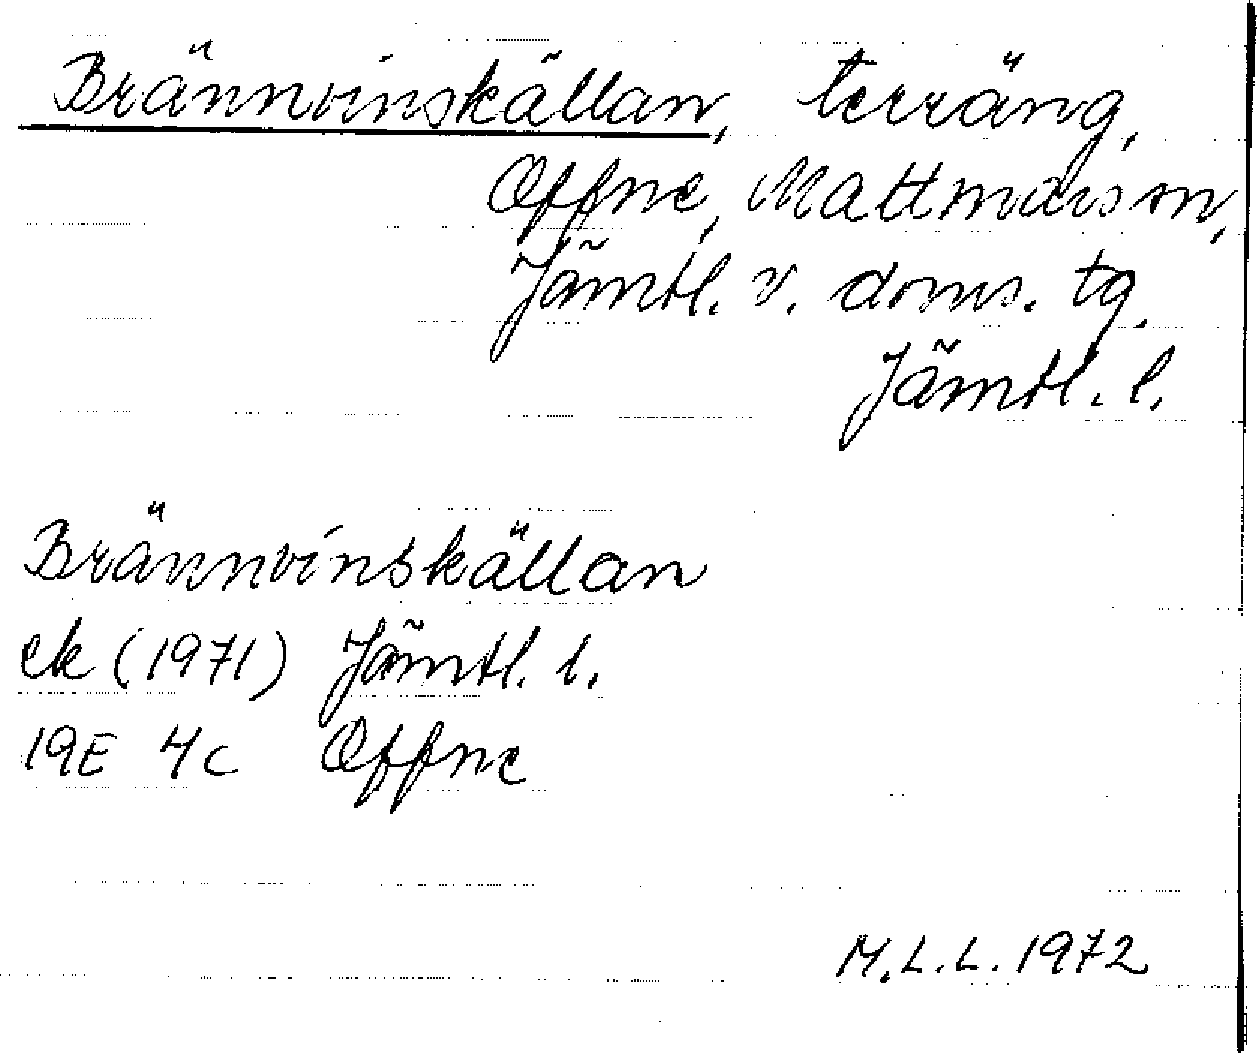 Brännvinskällan, terräng,
Offne, Mattmars sn,
Jämtl. v. doms. tg.
Jämtl. l.
Brännvinskällan
ek (1971) Jämtl. l.
19E 4c Offne
M.L.L. 1972